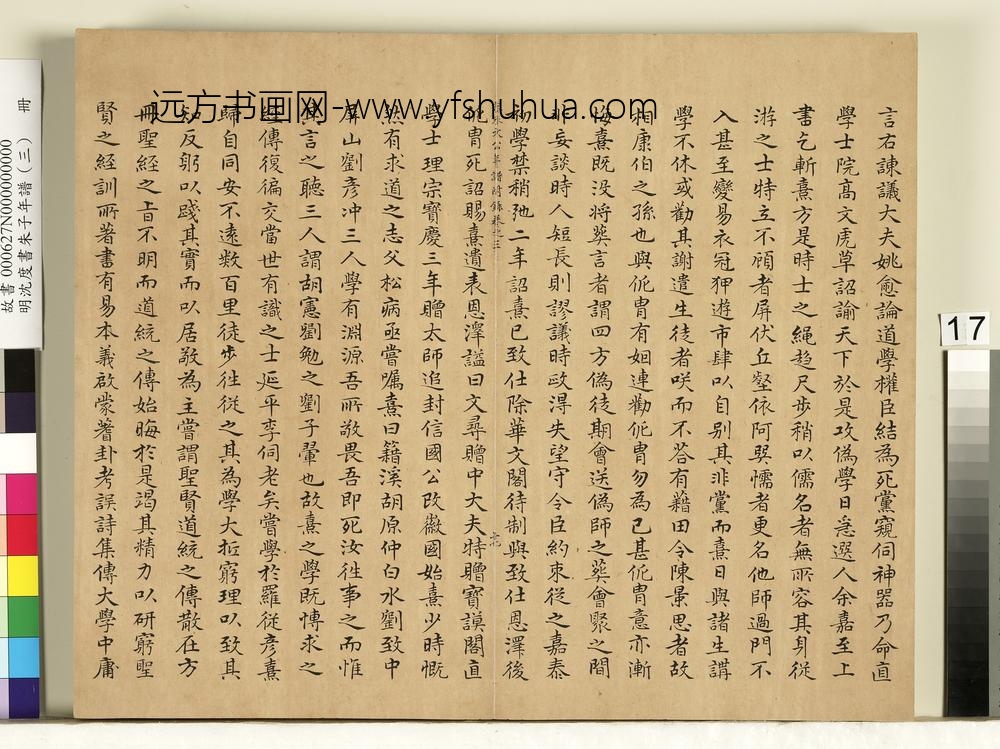 言右諫議大夫姚愈論道學權臣結為死黨窺伺神器乃命直
學士院高文虎草詔諭天下於是攻偽學日急選人余嘉至上
書乞斬熹方是時士之繩趨尺步稍以儒名者無所容其身從
游之士特立不顧者屏伏丘壑依阿巽懦者更名他師過門不
入甚至變易衣冠狎遊市肆以自別其非黨而熹日與諸生講
學不休或勸其謝遣生徒者咲而不答有藉田令陳景思者故
相康伯之孫也與侂冑有姻連勸侂冑勿為已甚侂冑意亦漸
悔熹既没將葬言者謂四方偽徒期會送偽師之葬會聚之間
非妄談時人短長則謬議時政得失望守令臣約束從之嘉泰
初學禁稍弛二年詔熹已致仕除華文閣待制與致仕恩澤後
侂冑死詔賜熹遺表恩澤謚曰文尋贈中大夫特贈寶謨閣直
學士理宗寶慶三年贈太師追封信國公改徽國始熹少時慨
然有求道之志父松病亟嘗囑熹曰籍溪胡原仲白水劉致中
屏山劉彥冲三人學有淵源吾所敬畏吾即死汝往事之而惟
其言之聽三人謂胡憲劉勉之劉子翬也故熹之學既慱求之
經傳復徧交當世有識之士延平李侗老矣嘗學於羅從彥熹
歸自同安不遠數百里徒步往從之其為學大抵窮理以致其
知反躬以踐其實而以居敬為主嘗謂聖賢道統之傳散在方
冊聖經之旨不明而道統之傳始晦於是竭其精力以研窮聖
賢之經訓所著書有易本義啟蒙蓍卦考誤詩集傳大學中庸
远方书画网-www.yfshuhua.com
故書 000627N000000000
明沈度書朱子年譜(三) 冊
17